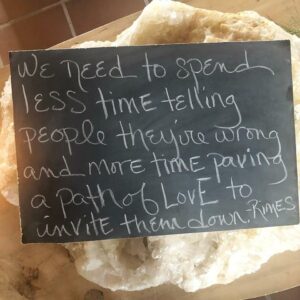 We need to spend
less time telling
people they're wrong
and more time paving
a path of LOVE to
invite them down.-RIMES